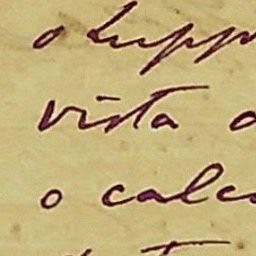 o supp
vista a
o calc